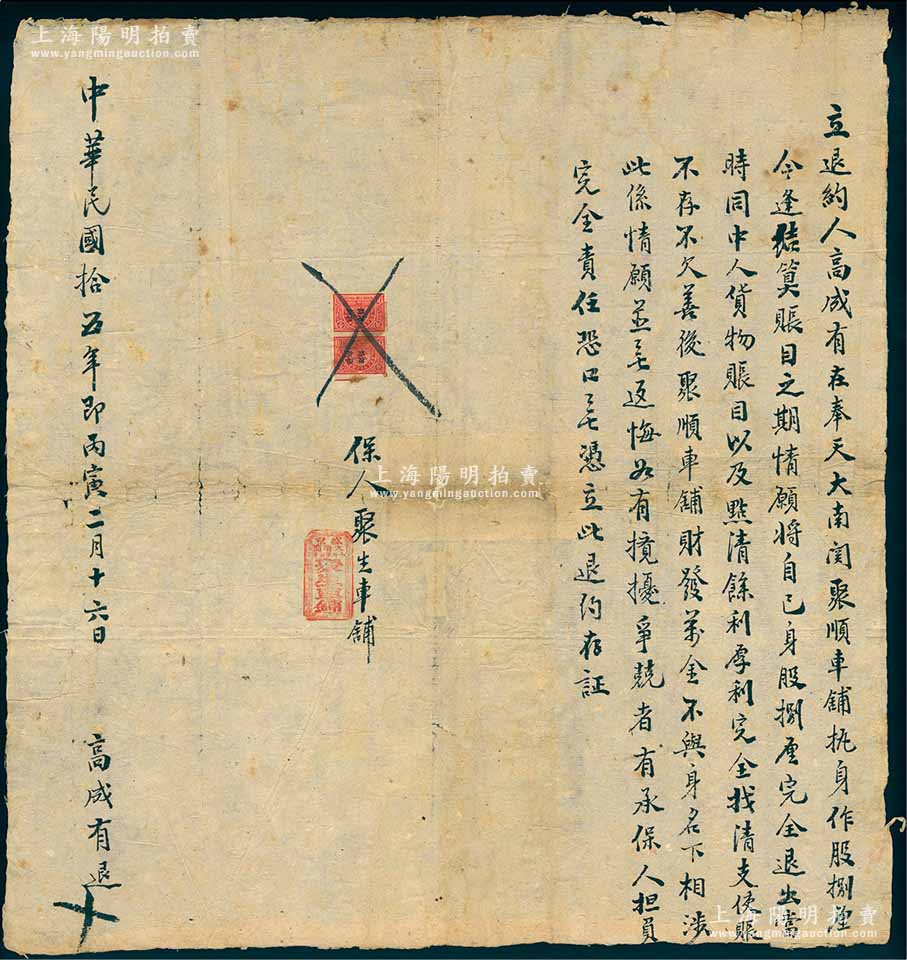 立退約人高成有在奉天大南関聚順車舖抚身作股捌厘
今逢結算賬目之期情願将自己身股捌厘完全退出當
時同中人貨物賬目以及點清餘利厚利完全找清支使賬
不存不欠善後聚順車舖財發萬金不與身名下相涉
此係情願並無返悔如有攪擾爭競者有承保人担負
完全責任恐口無憑立此退約存証
保人聚生車舖
中華民國拾五年即丙寅二月十六日
高成有退
上海陽明拍賣
www.yangmingauction.com
上海陽明拍賣
www.yangmingauction.com
上海陽明拍賣
www.yangmingauction.com